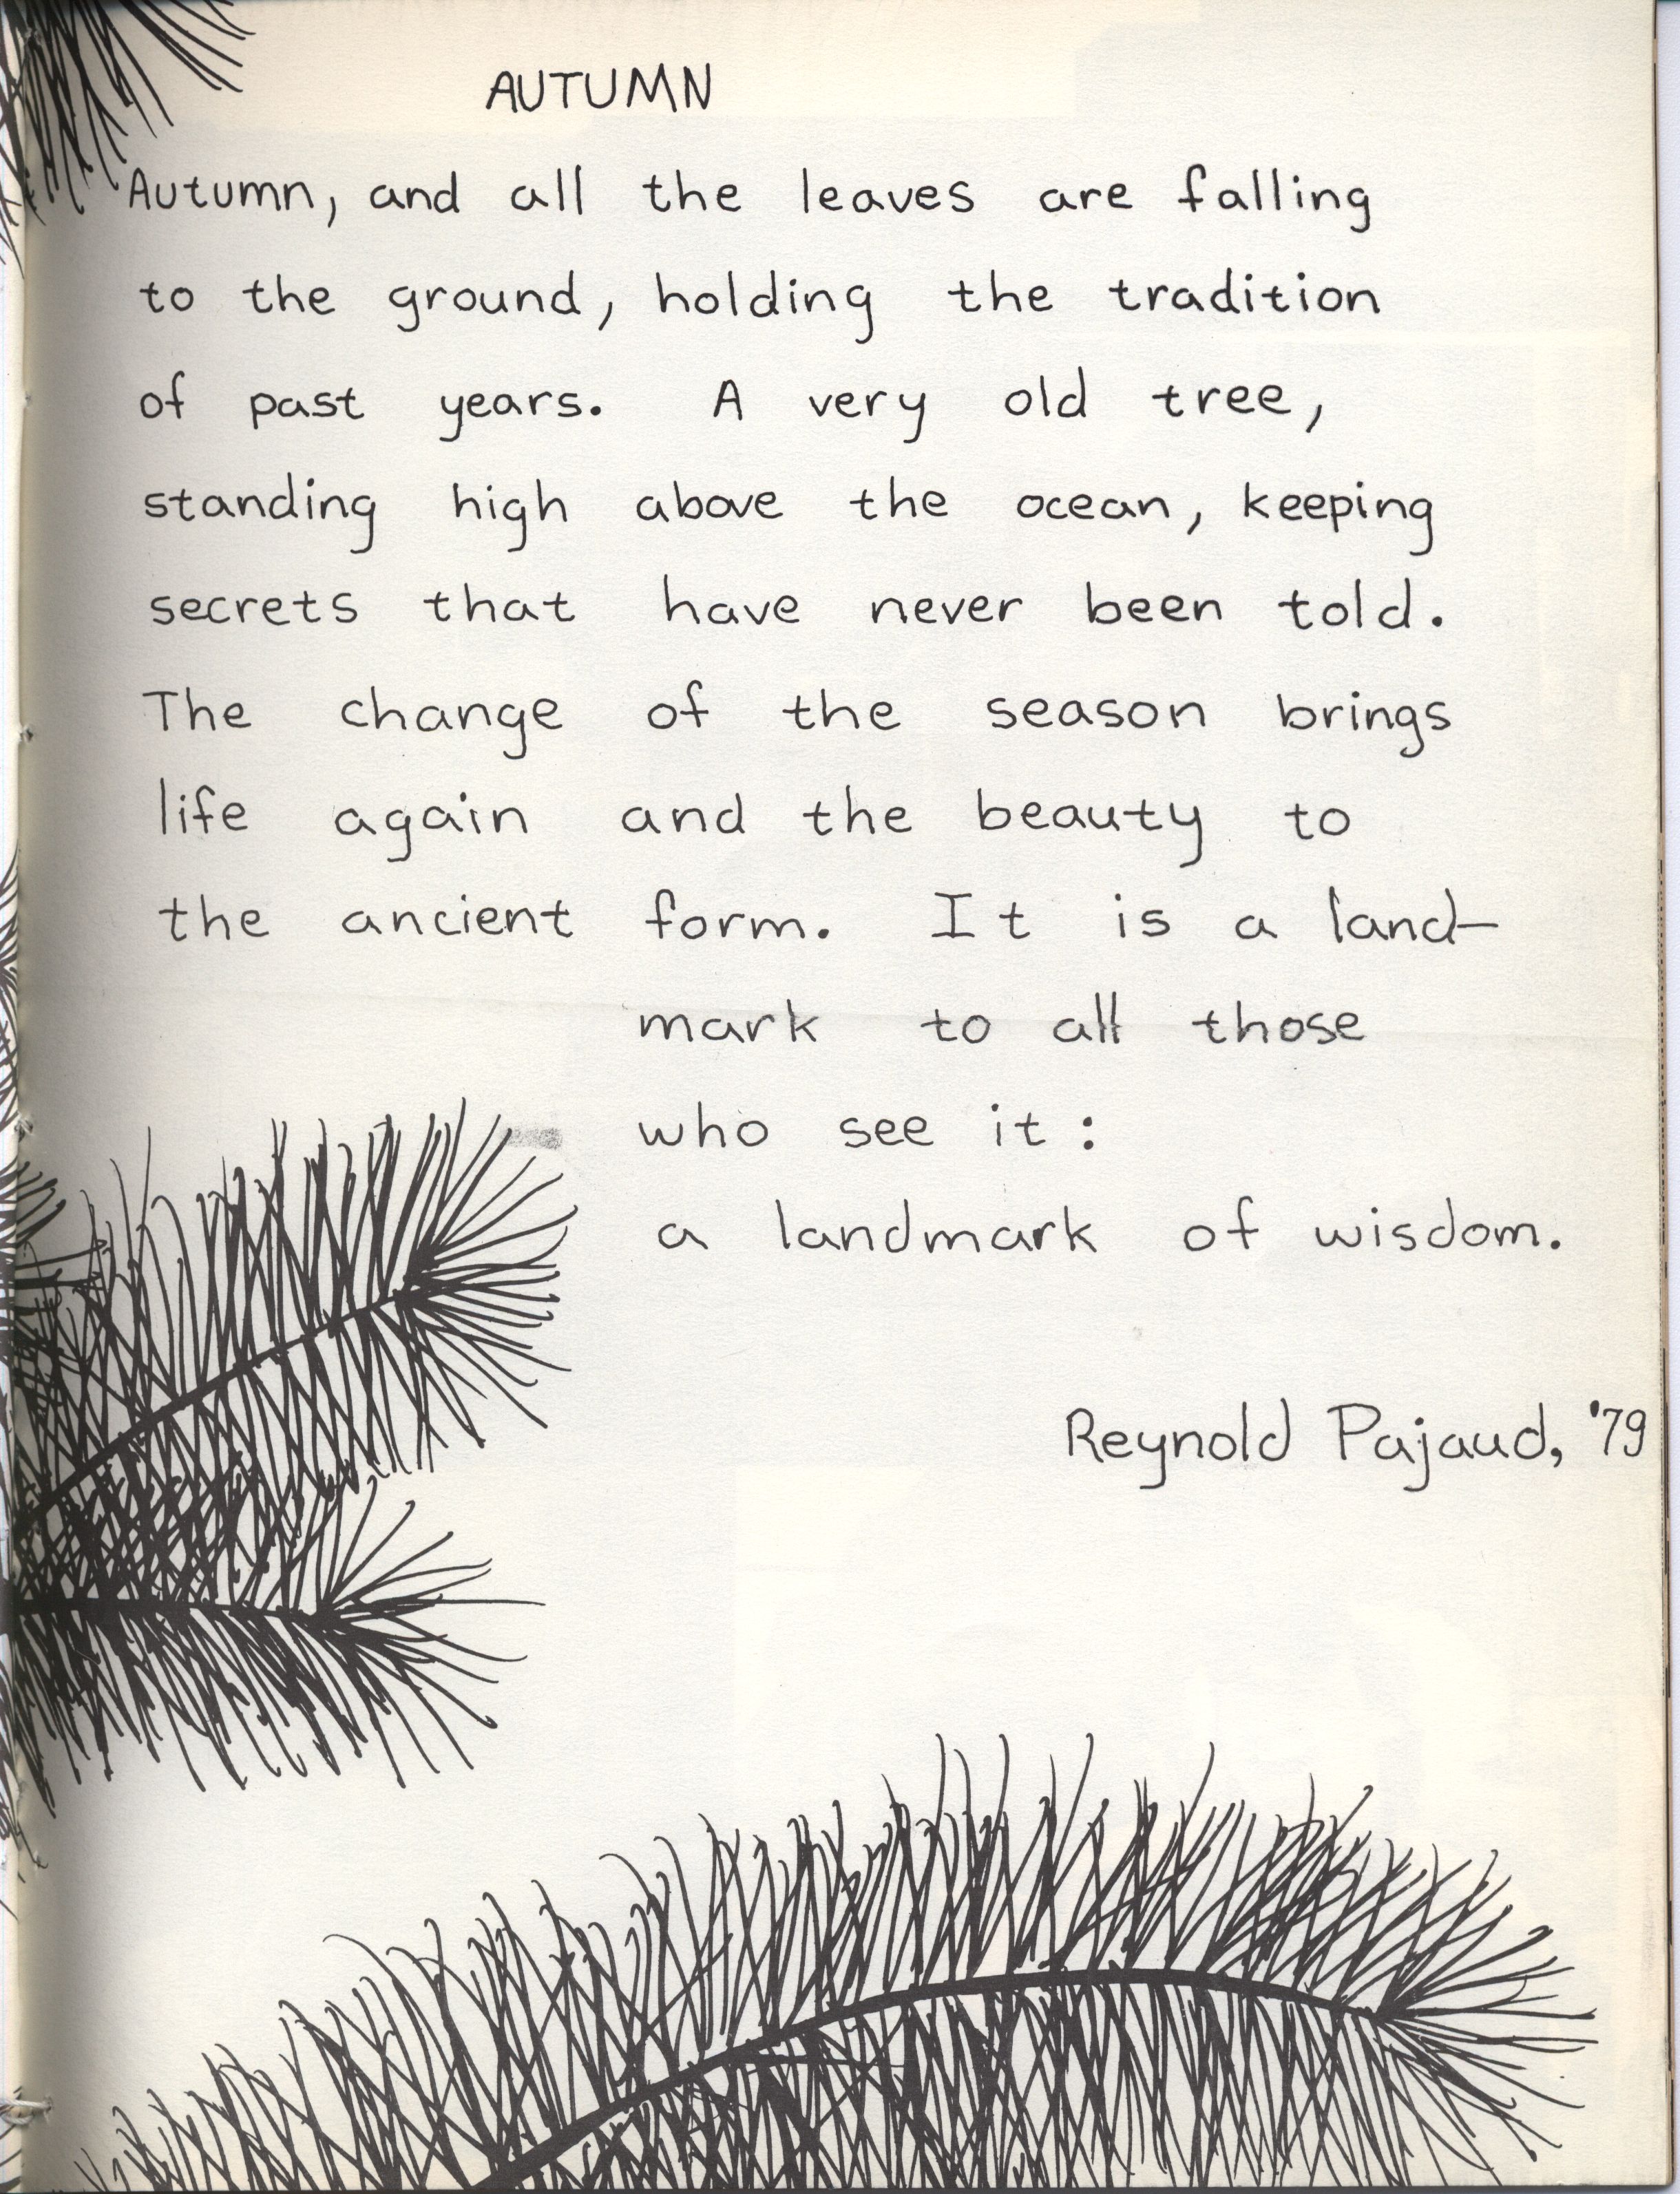 AUTUMN
Autumn, and all the leaves are falling
to the ground, holding the tradition
of past years. A very old tree,
standing high above the ocean, keeping
secrets that have never been told.
The change of the season brings
life again and the beauty to
the ancient form. It is a land-
mark to all those
who see it:
a landmark of wisdom.
Reynold Pajaud, '79